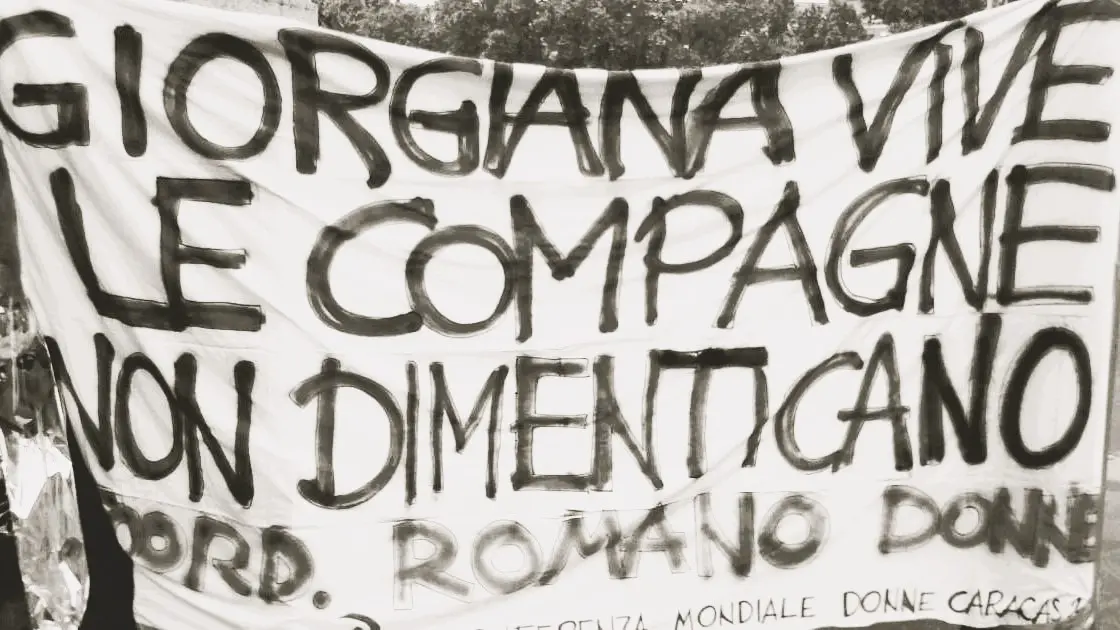 GIORGIANA VIVE
LE COMPAGNE
NON DIMENTICANO
COORD. ROMANO DONNE
CONFERENZA MONDIALE DONNE CARACAS